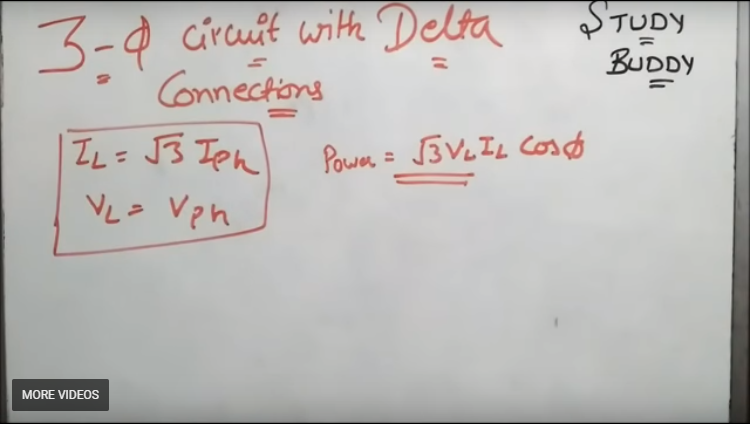 3-ϕ circuit with Delta
Connections
STUDY
BUDDY
IL = √3 Iph
VL = Vph
Power = √3 VL IL Cosϕ
MORE VIDEOS